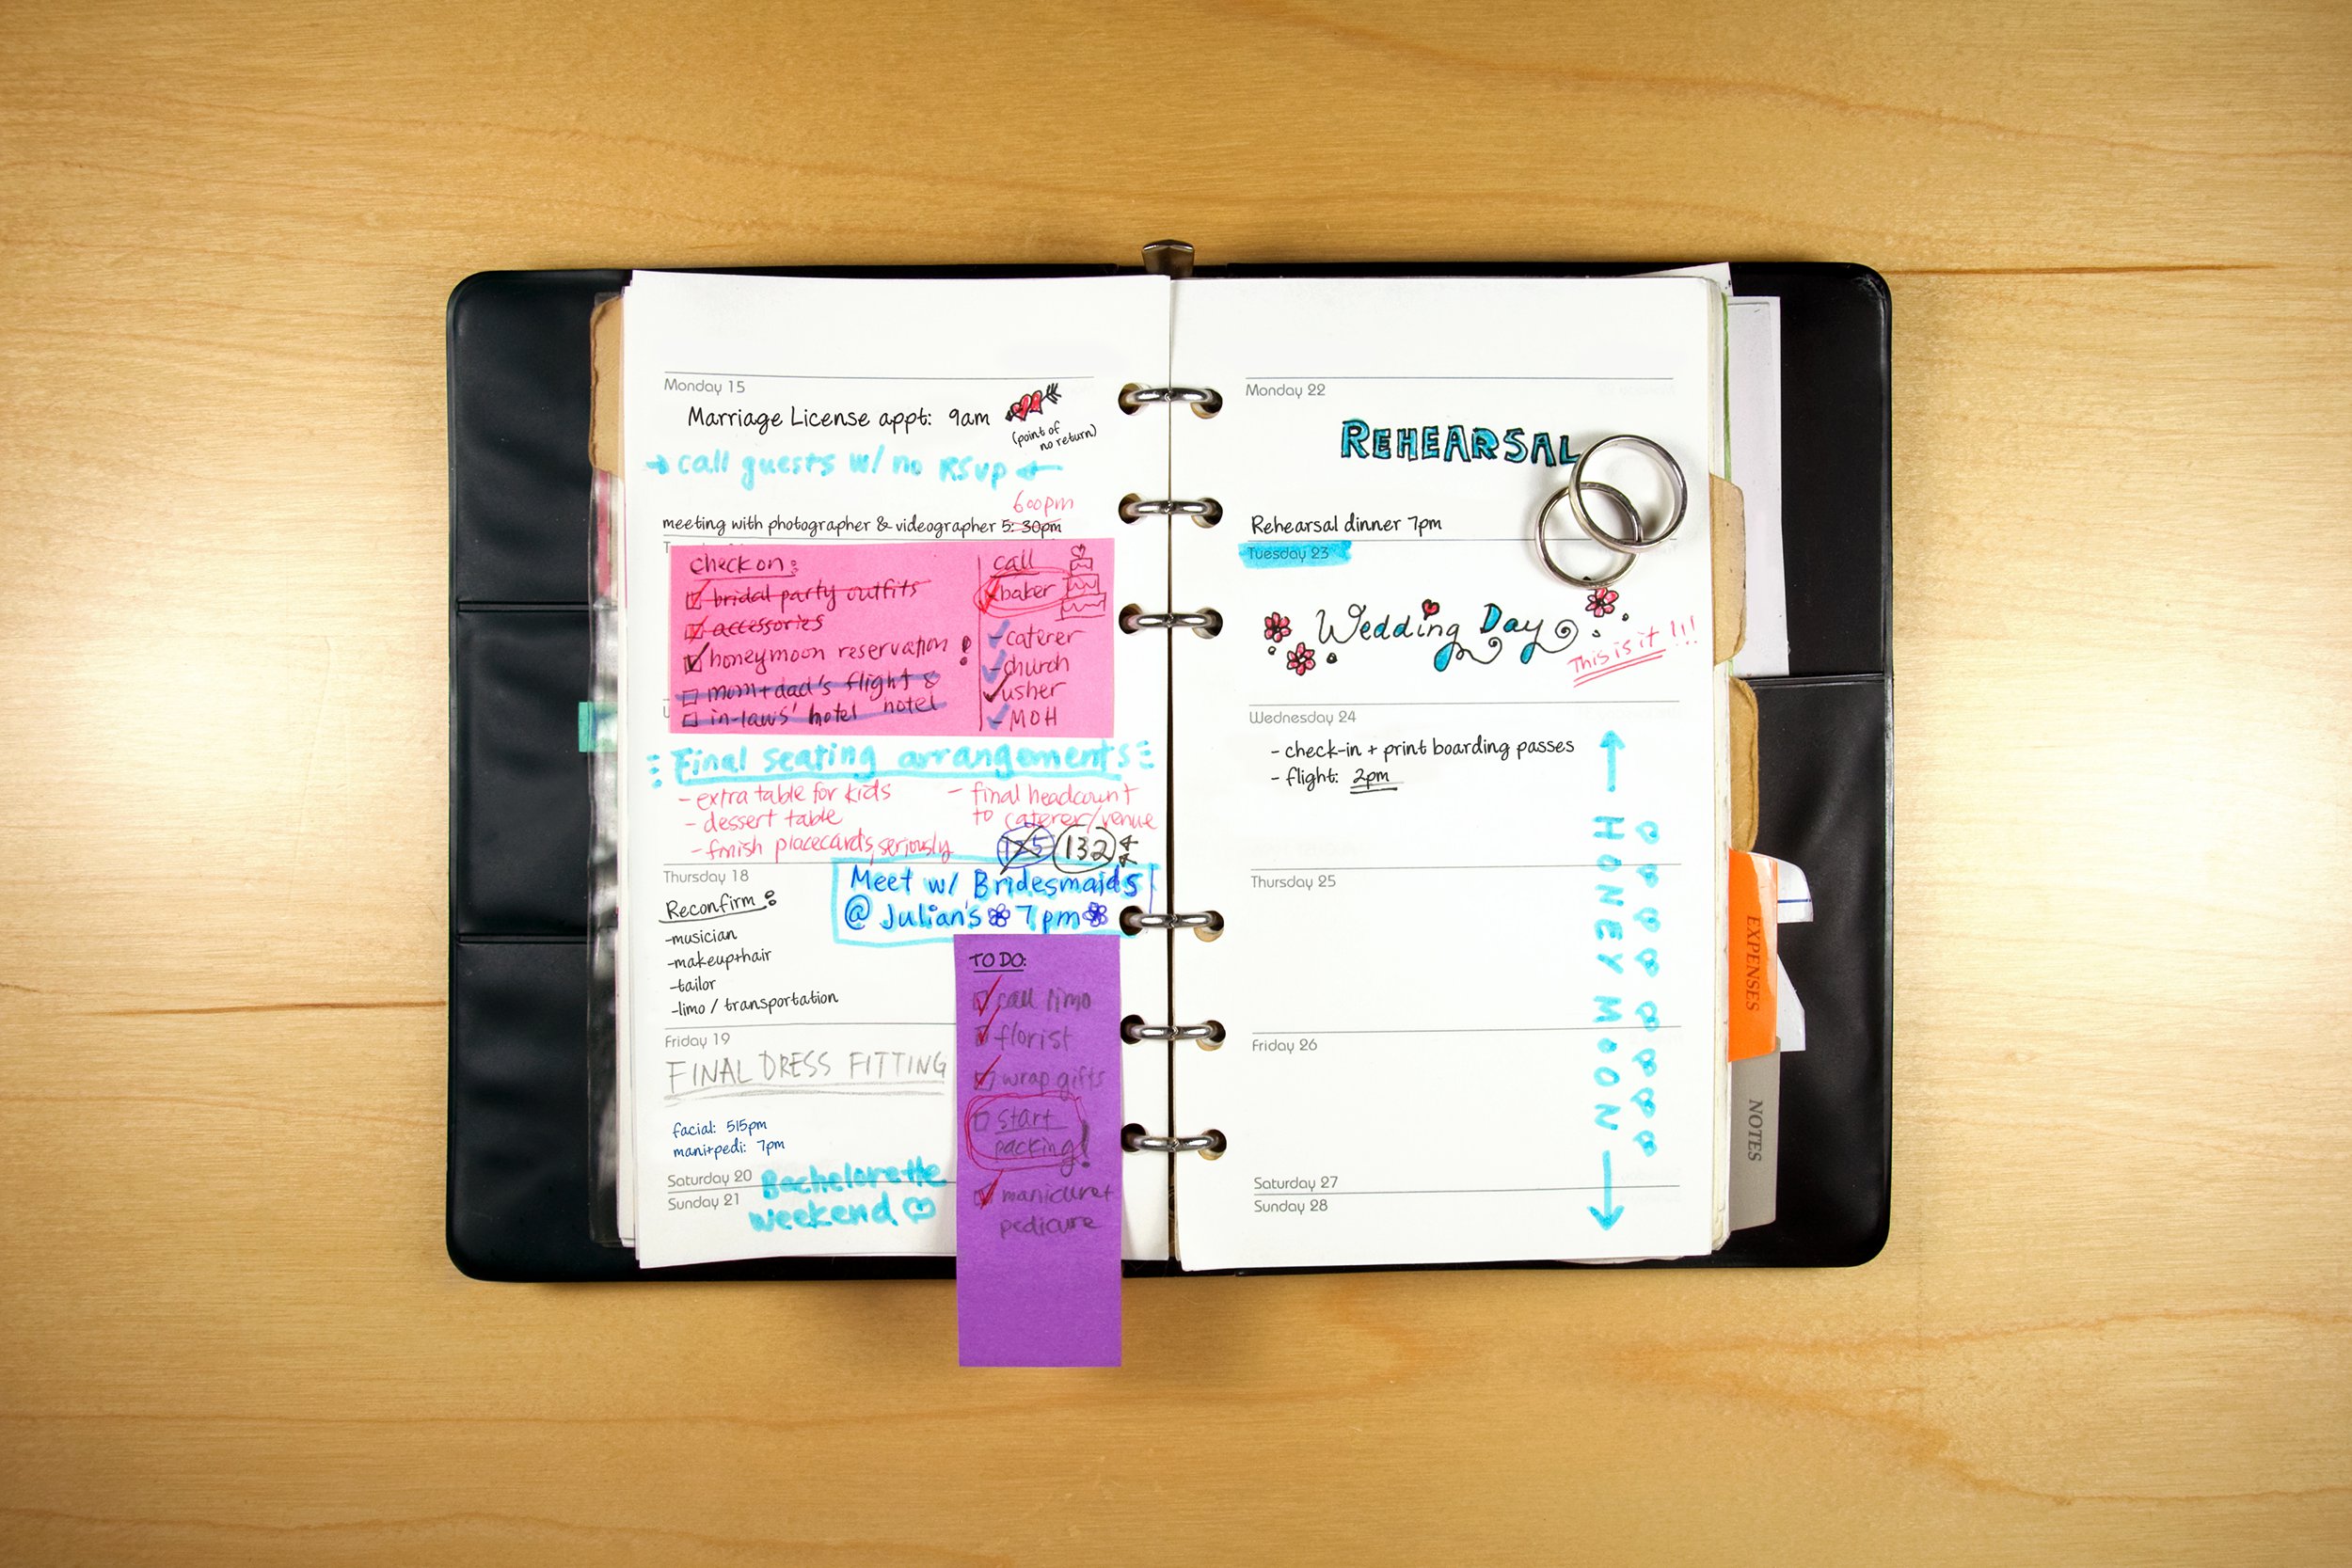 Monday 15
Marriage License appt: 9am
(point of
no return)
→ call guests w/ no RSVP ←
600pm
meeting with photographer & videographer 5:30pm
check on:
bridal party outfits
accessories
honeymoon reservation !
mom+dad's flight &
hotel
in-laws' hotel
call
baker
- caterer
- church
usher
- MOH
Final seating arrangements
- extra table for kids
- dessert table
- finish placecards, seriously
- final headcount
to caterer/venue
132
Thursday 18
Meet w/ Bridesmaids
@ Julian's 7pm
Reconfirm:
-musician
-makeup+hair
-tailor
-limo / transportation
Friday 19
FINAL DRESS FITTING
facial: 515pm
mani+pedi: 7pm
Saturday 20
Sunday 21
Bachelorette
weekend
TO DO:
call limo
florist
wrap gifts
start
packing!
manicure+
pedicure
Monday 22
REHEARSAL
Rehearsal dinner 7pm
Tuesday 23
Wedding Day
This is it !!!
Wednesday 24
- check-in + print boarding passes
- flight: 2pm
HONEYMOON
Thursday 25
Friday 26
Saturday 27
Sunday 28
EXPENSES
NOTES